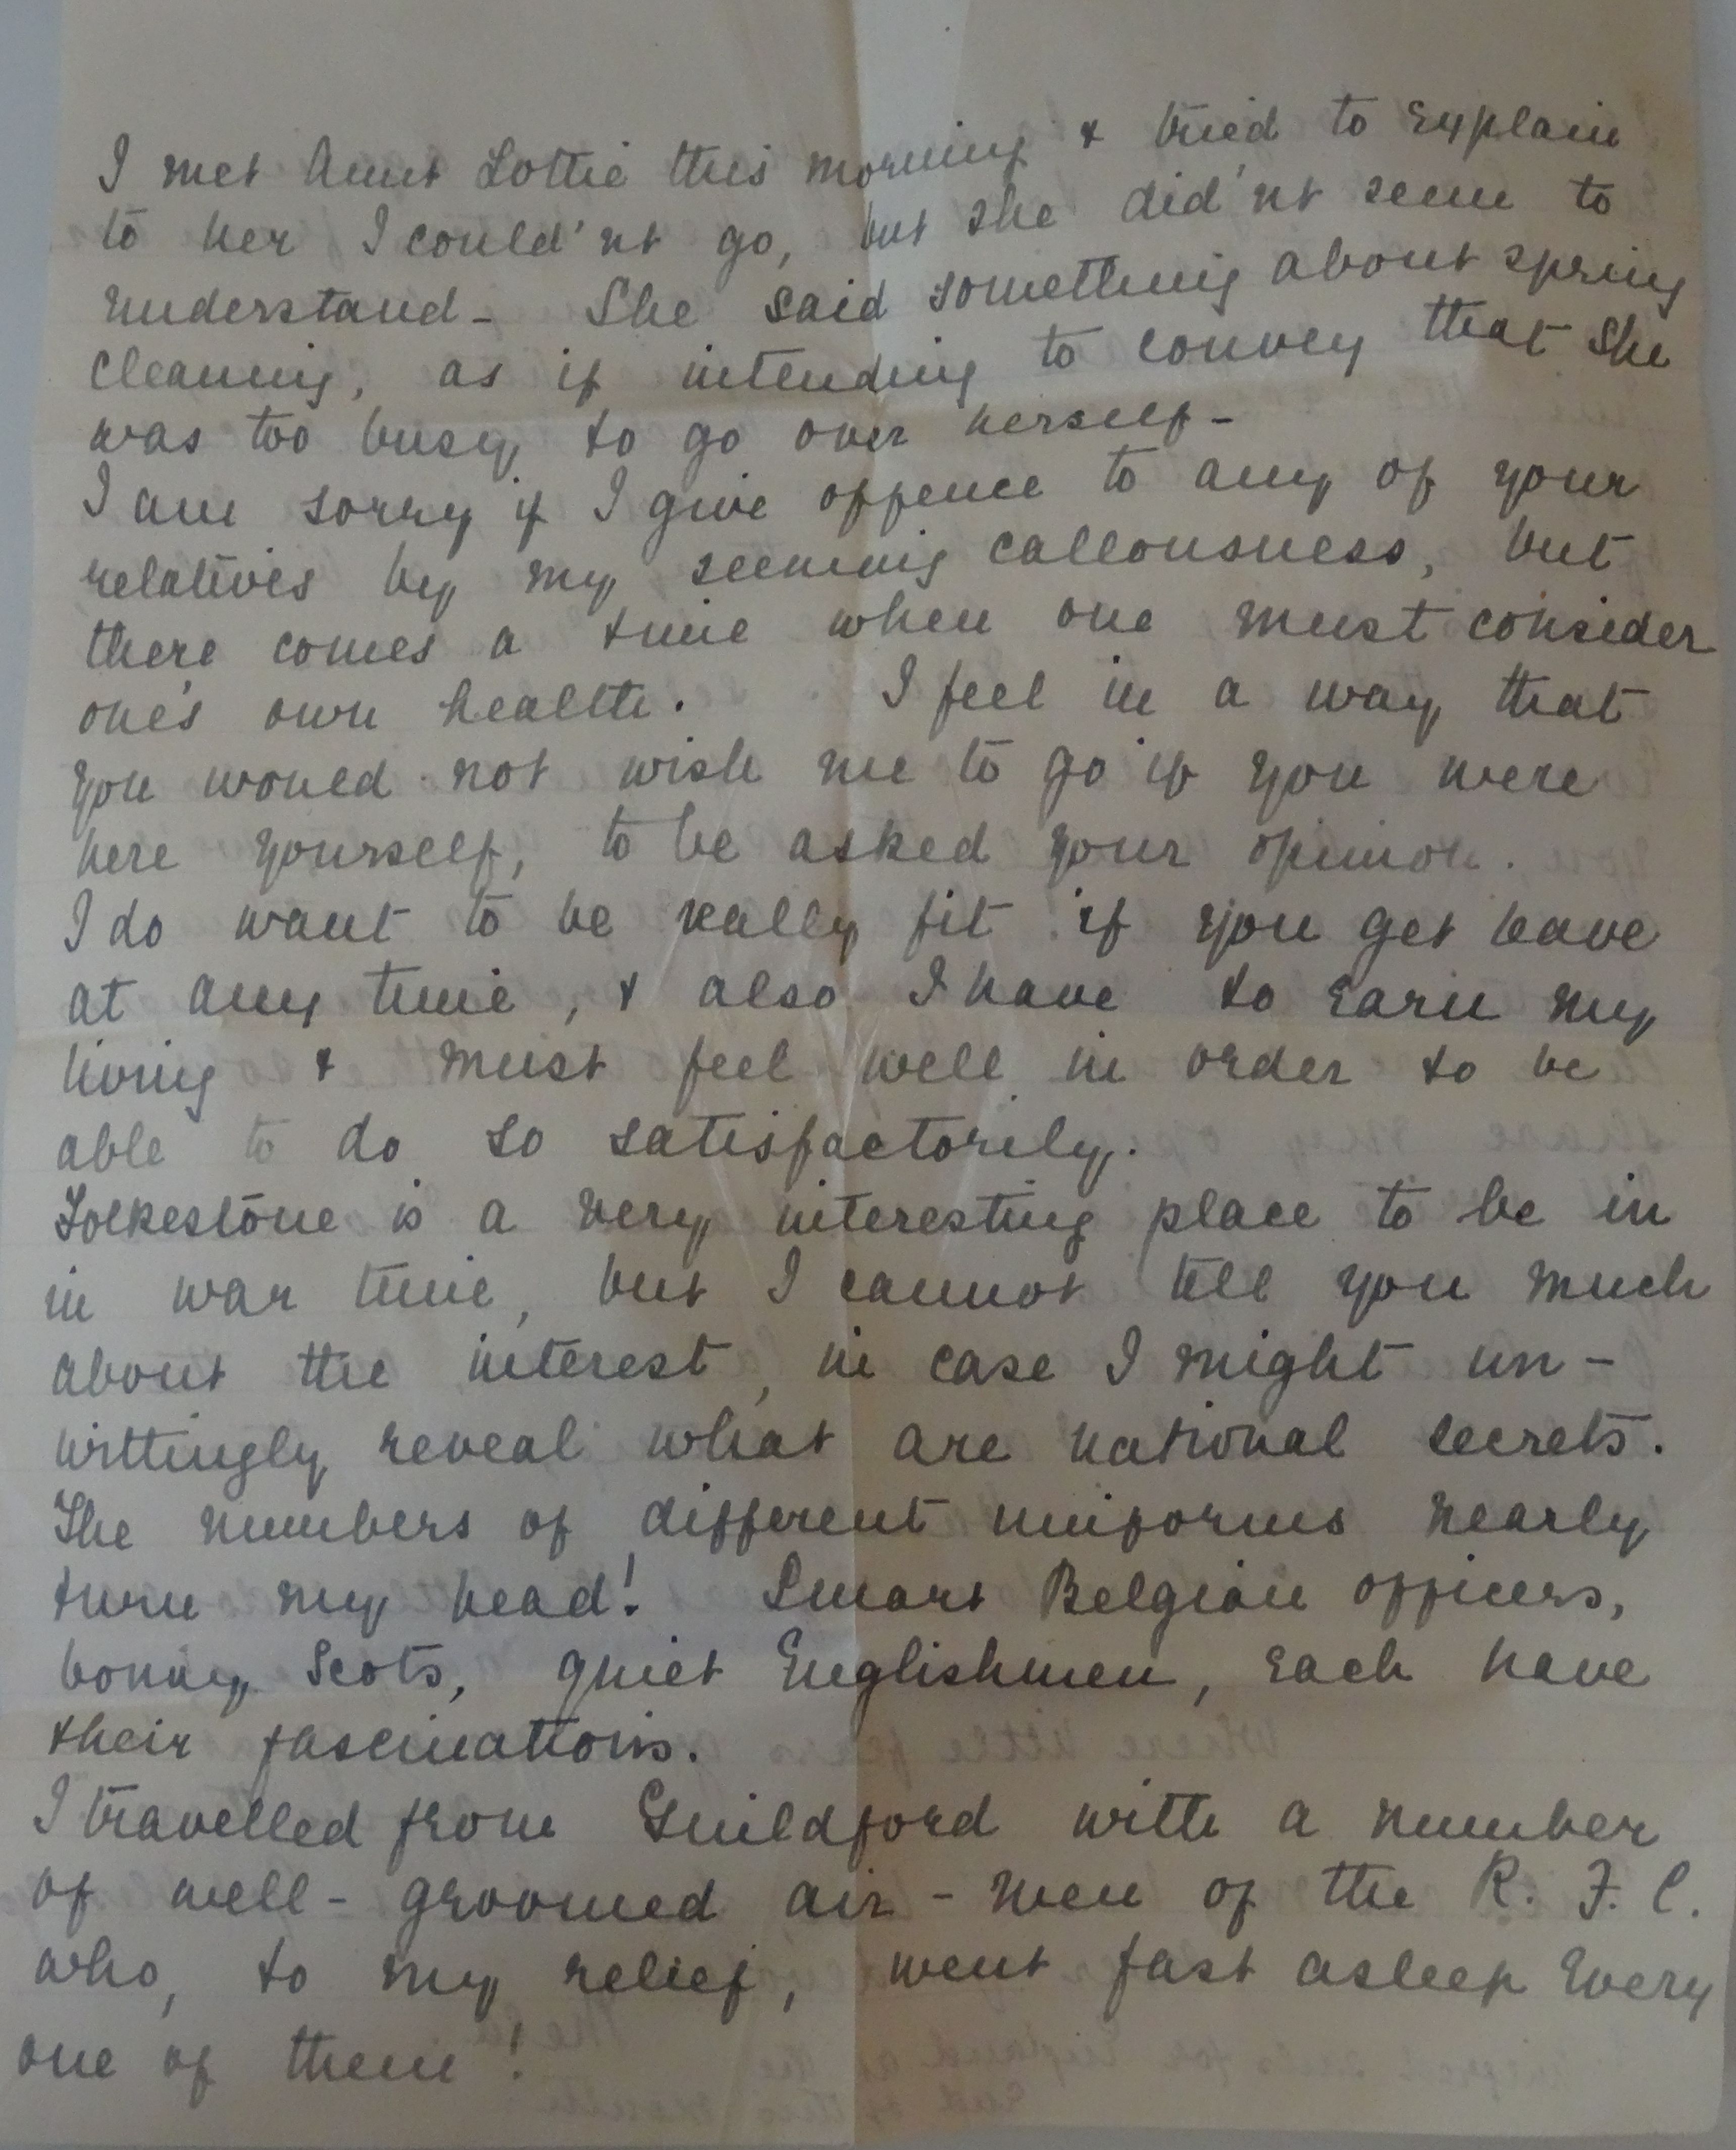 I met Aunt Lottie this morning & tried to explain
to her I could'nt go, but she did'nt seem to
understand - She said something about spring
cleaning, as if intending to convey that she
was too busy to go over herself -
I am sorry if I give offence to any of your
relatives by my seeming callousness, but
there comes a time when one must consider
one's own health. I feel in a way that
you would not wish me to go if you were
here yourself, to be asked your opinion.
I do want to be really fit if you get leave
at any time, & also I have to earn my
living & must feel well in order to be
able to do so satisfactorily.
Folkestone is a very interesting place to be in
in war time, but I cannot tell you much
about the interest, in case I might un-
wittingly reveal what are national secrets.
The numbers of different uniforms nearly
turn my head! Smart Belgian officers,
bonny Scots, quiet Englishmen, each have
their fascinations.
I travelled from Guildford with a number
of well-groomed air-men of the R. F. C.
who, to my relief, went fast asleep every
one of them!